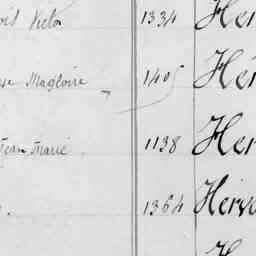 Victor 1334 Her
Magloire 1405 Her
Jean Marie 1138 Her
1364 Herv